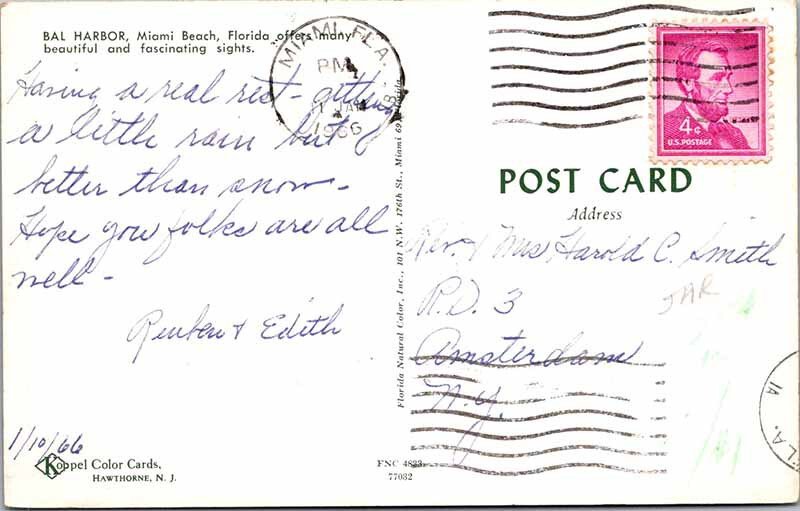 BAL HARBOR, Miami Beach, Florida offers many
beautiful and fascinating sights.
Having a real rest - getting
a little rain but
better than snow -
Hope you folks are all
well -
Reuben & Edith
1/10/66
Koppel Color Cards,
HAWTHORNE, N. J.
FNC 4823
77032
Florida Natural Color, Inc., 101 N.W. 176th St., Miami 69, Florida
MIAMI, FLA.
PM
JAN
1966
4¢
U.S. POSTAGE
POST CARD
Address
Rev. & Mrs Harold C. Smith
R.D. 3
Amsterdam
N.Y.
JAR
LA.